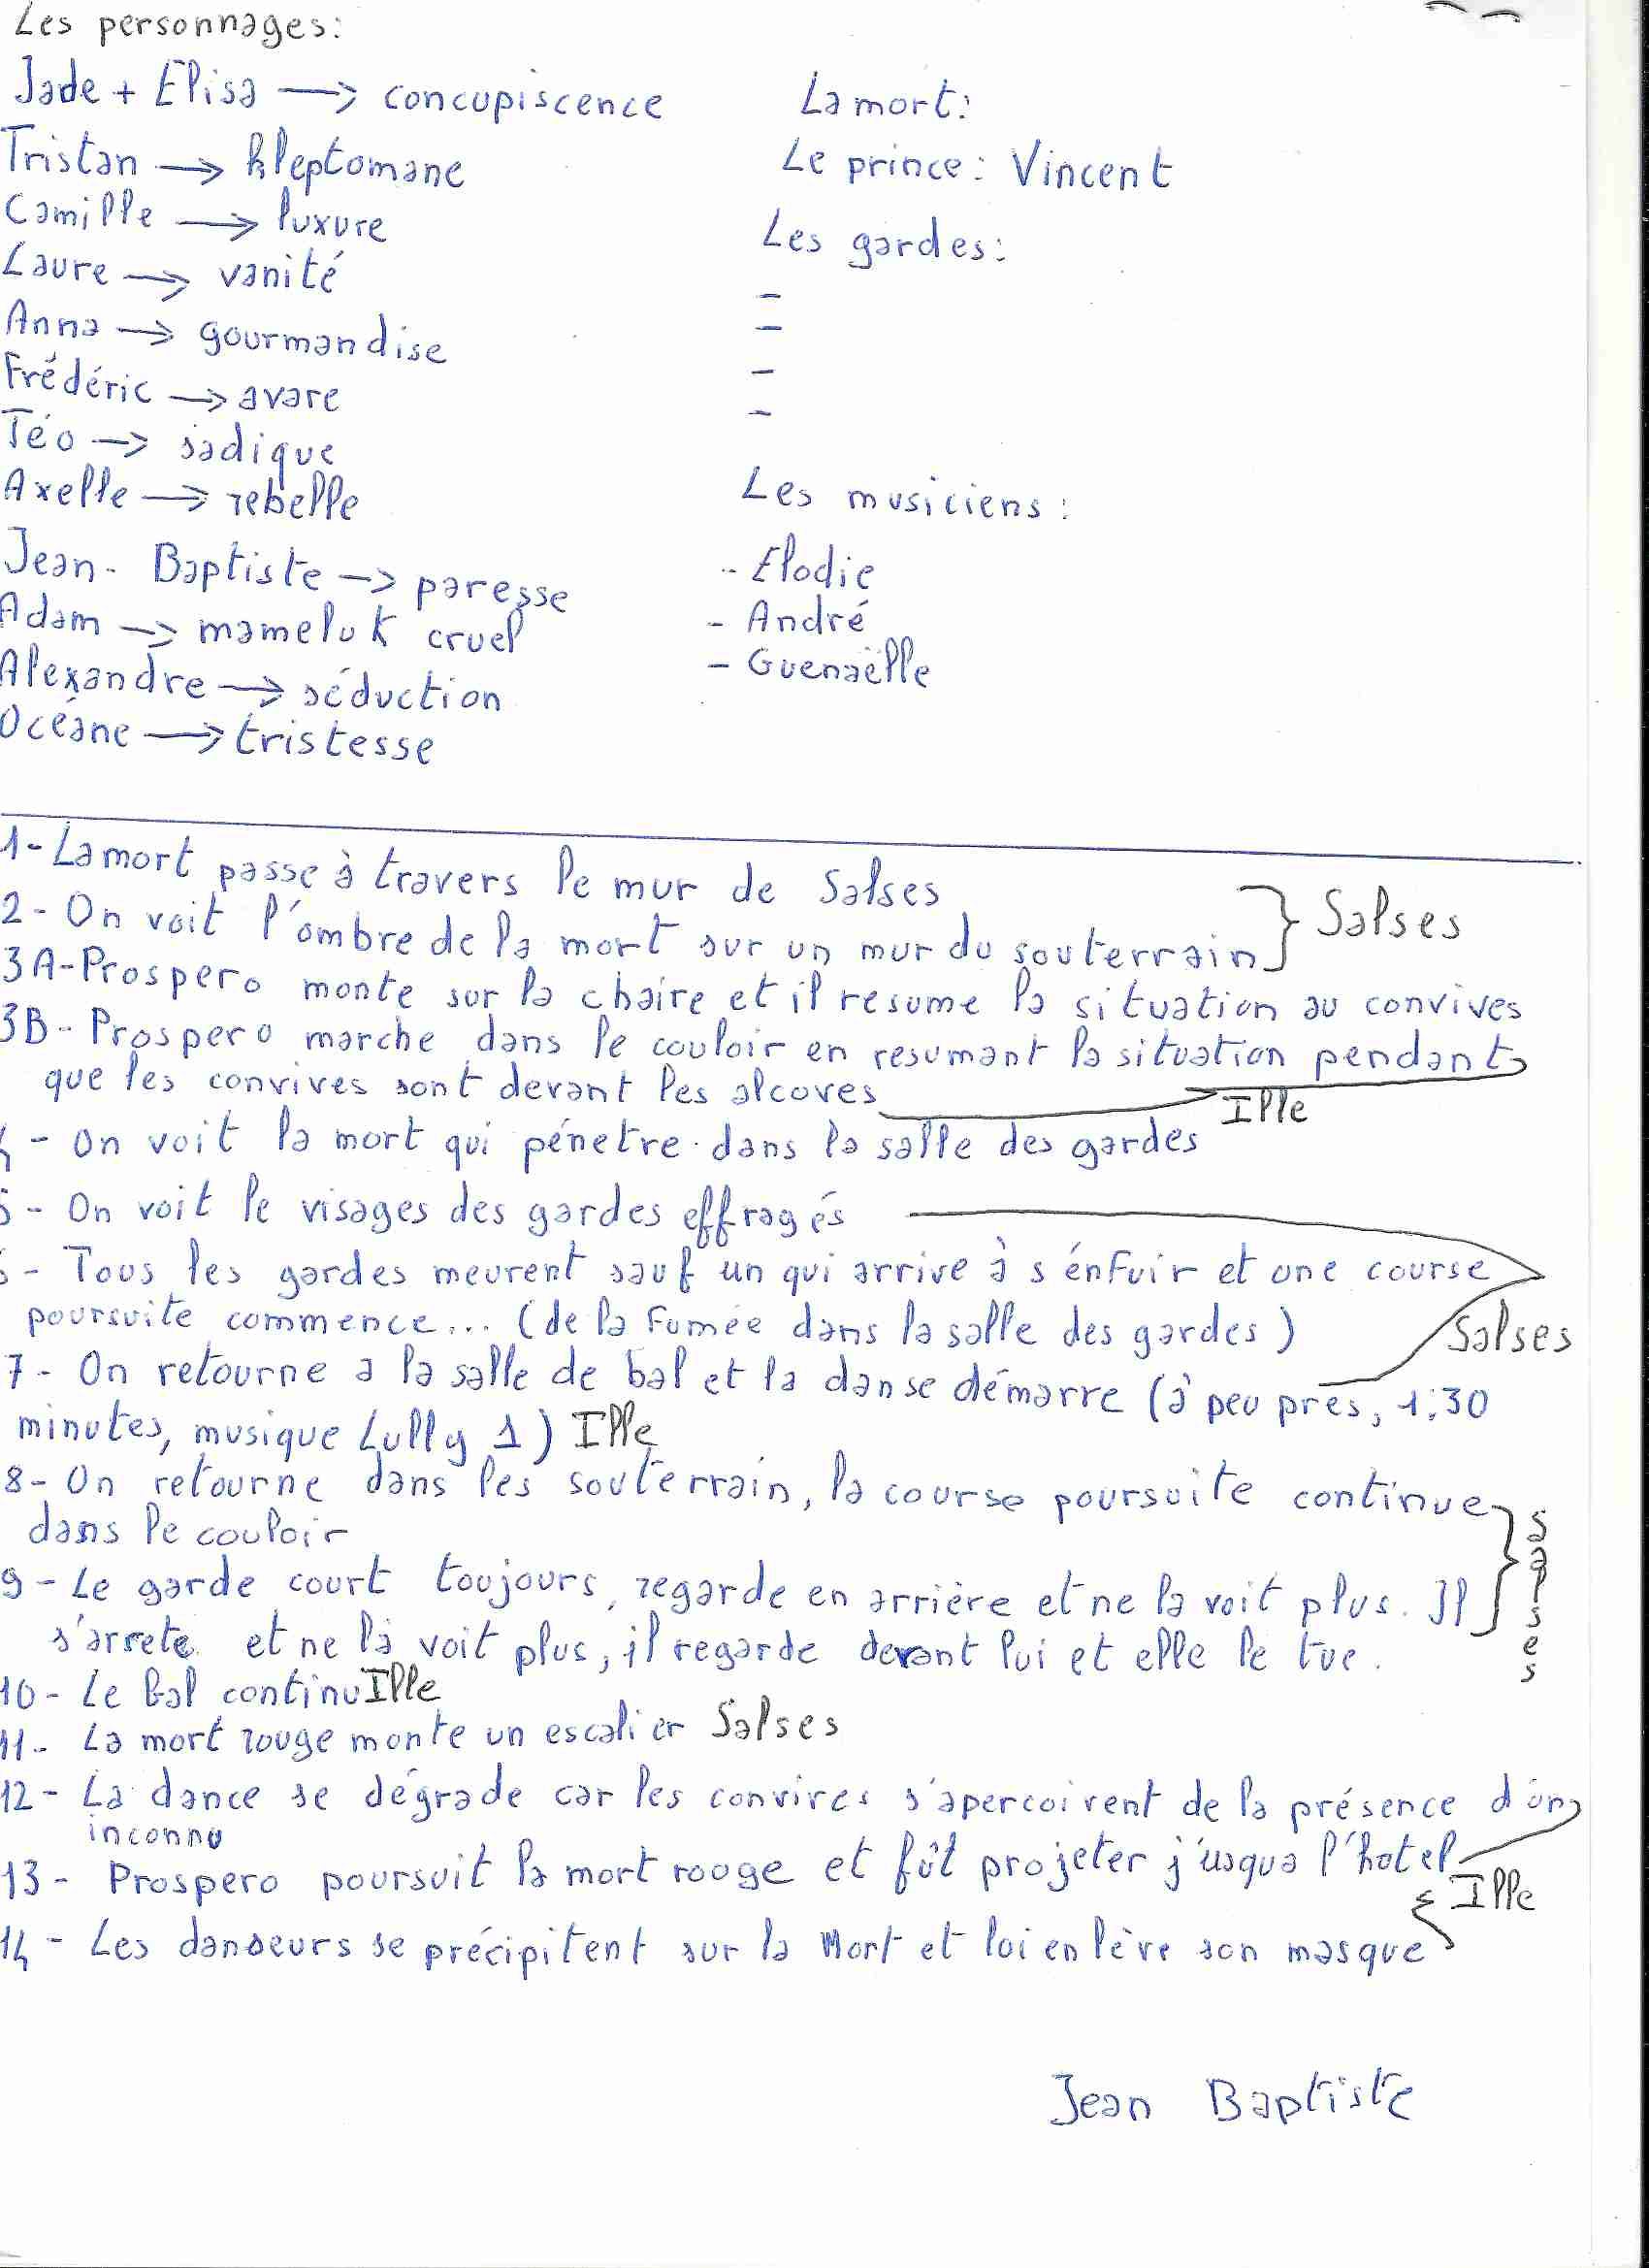 Les personnages:
Jade + Elisa —> concupiscence
Tristan —> kleptomane
Camille —> luxure
Laure —> vanité
Anna —> gourmandise
Frédéric —> avare
Téo —> sadique
Axelle —> rebelle
Jean- Baptiste —> paresse
Adam —> mameluk cruel
Alexandre —> séduction
Océane —> tristesse
La mort:
Le prince: Vincent
Les gardes:
-
-
-
-
Les musiciens:
- Elodie
- André
- Guenaëlle
1- La mort passe à travers le mur de Salses
2- On voit l'ombre de la mort sur un mur du souterrain } Salses
3A- Prospero monte sur la chaire et il resume la situation au convives
3B- Prospero marche dans le couloir en resumant la situation pendant
que les convives sont devant les alcoves Ille
4 - On voit la mort qui pénetre dans la salle des gardes
5 - On voit le visages des gardes effragés
6 - Tous les gardes meurent sauf un qui arrive à s'énfuir et une course
poursuite commence... (de la fumée dans la salle des gardes) Salses
7 - On retourne a la salle de bal et la danse démarre (à peu pres, 1:30
minutes, musique Lully 1) Ille
8- On retourne dans les souterrain, la course poursuite continue
dans le couloir
9 - Le garde court toujours, regarde en arrière et ne la voit plus. Il } Salses
s'arrete et ne la voit plus, il regarde devant lui et elle le tue.
10- Le bal continu Ille
11- La mort rouge monte un escalier Salses
12- La dance se dégrade car les convives s'apercoivent de la présence d'un
inconnu
13- Prospero poursuit la mort rouge et fût projeter j'usqua l'hotel Ille
14 - Les danseurs se précipitent sur la Mort et loi enlève son masque
Jean Baptiste